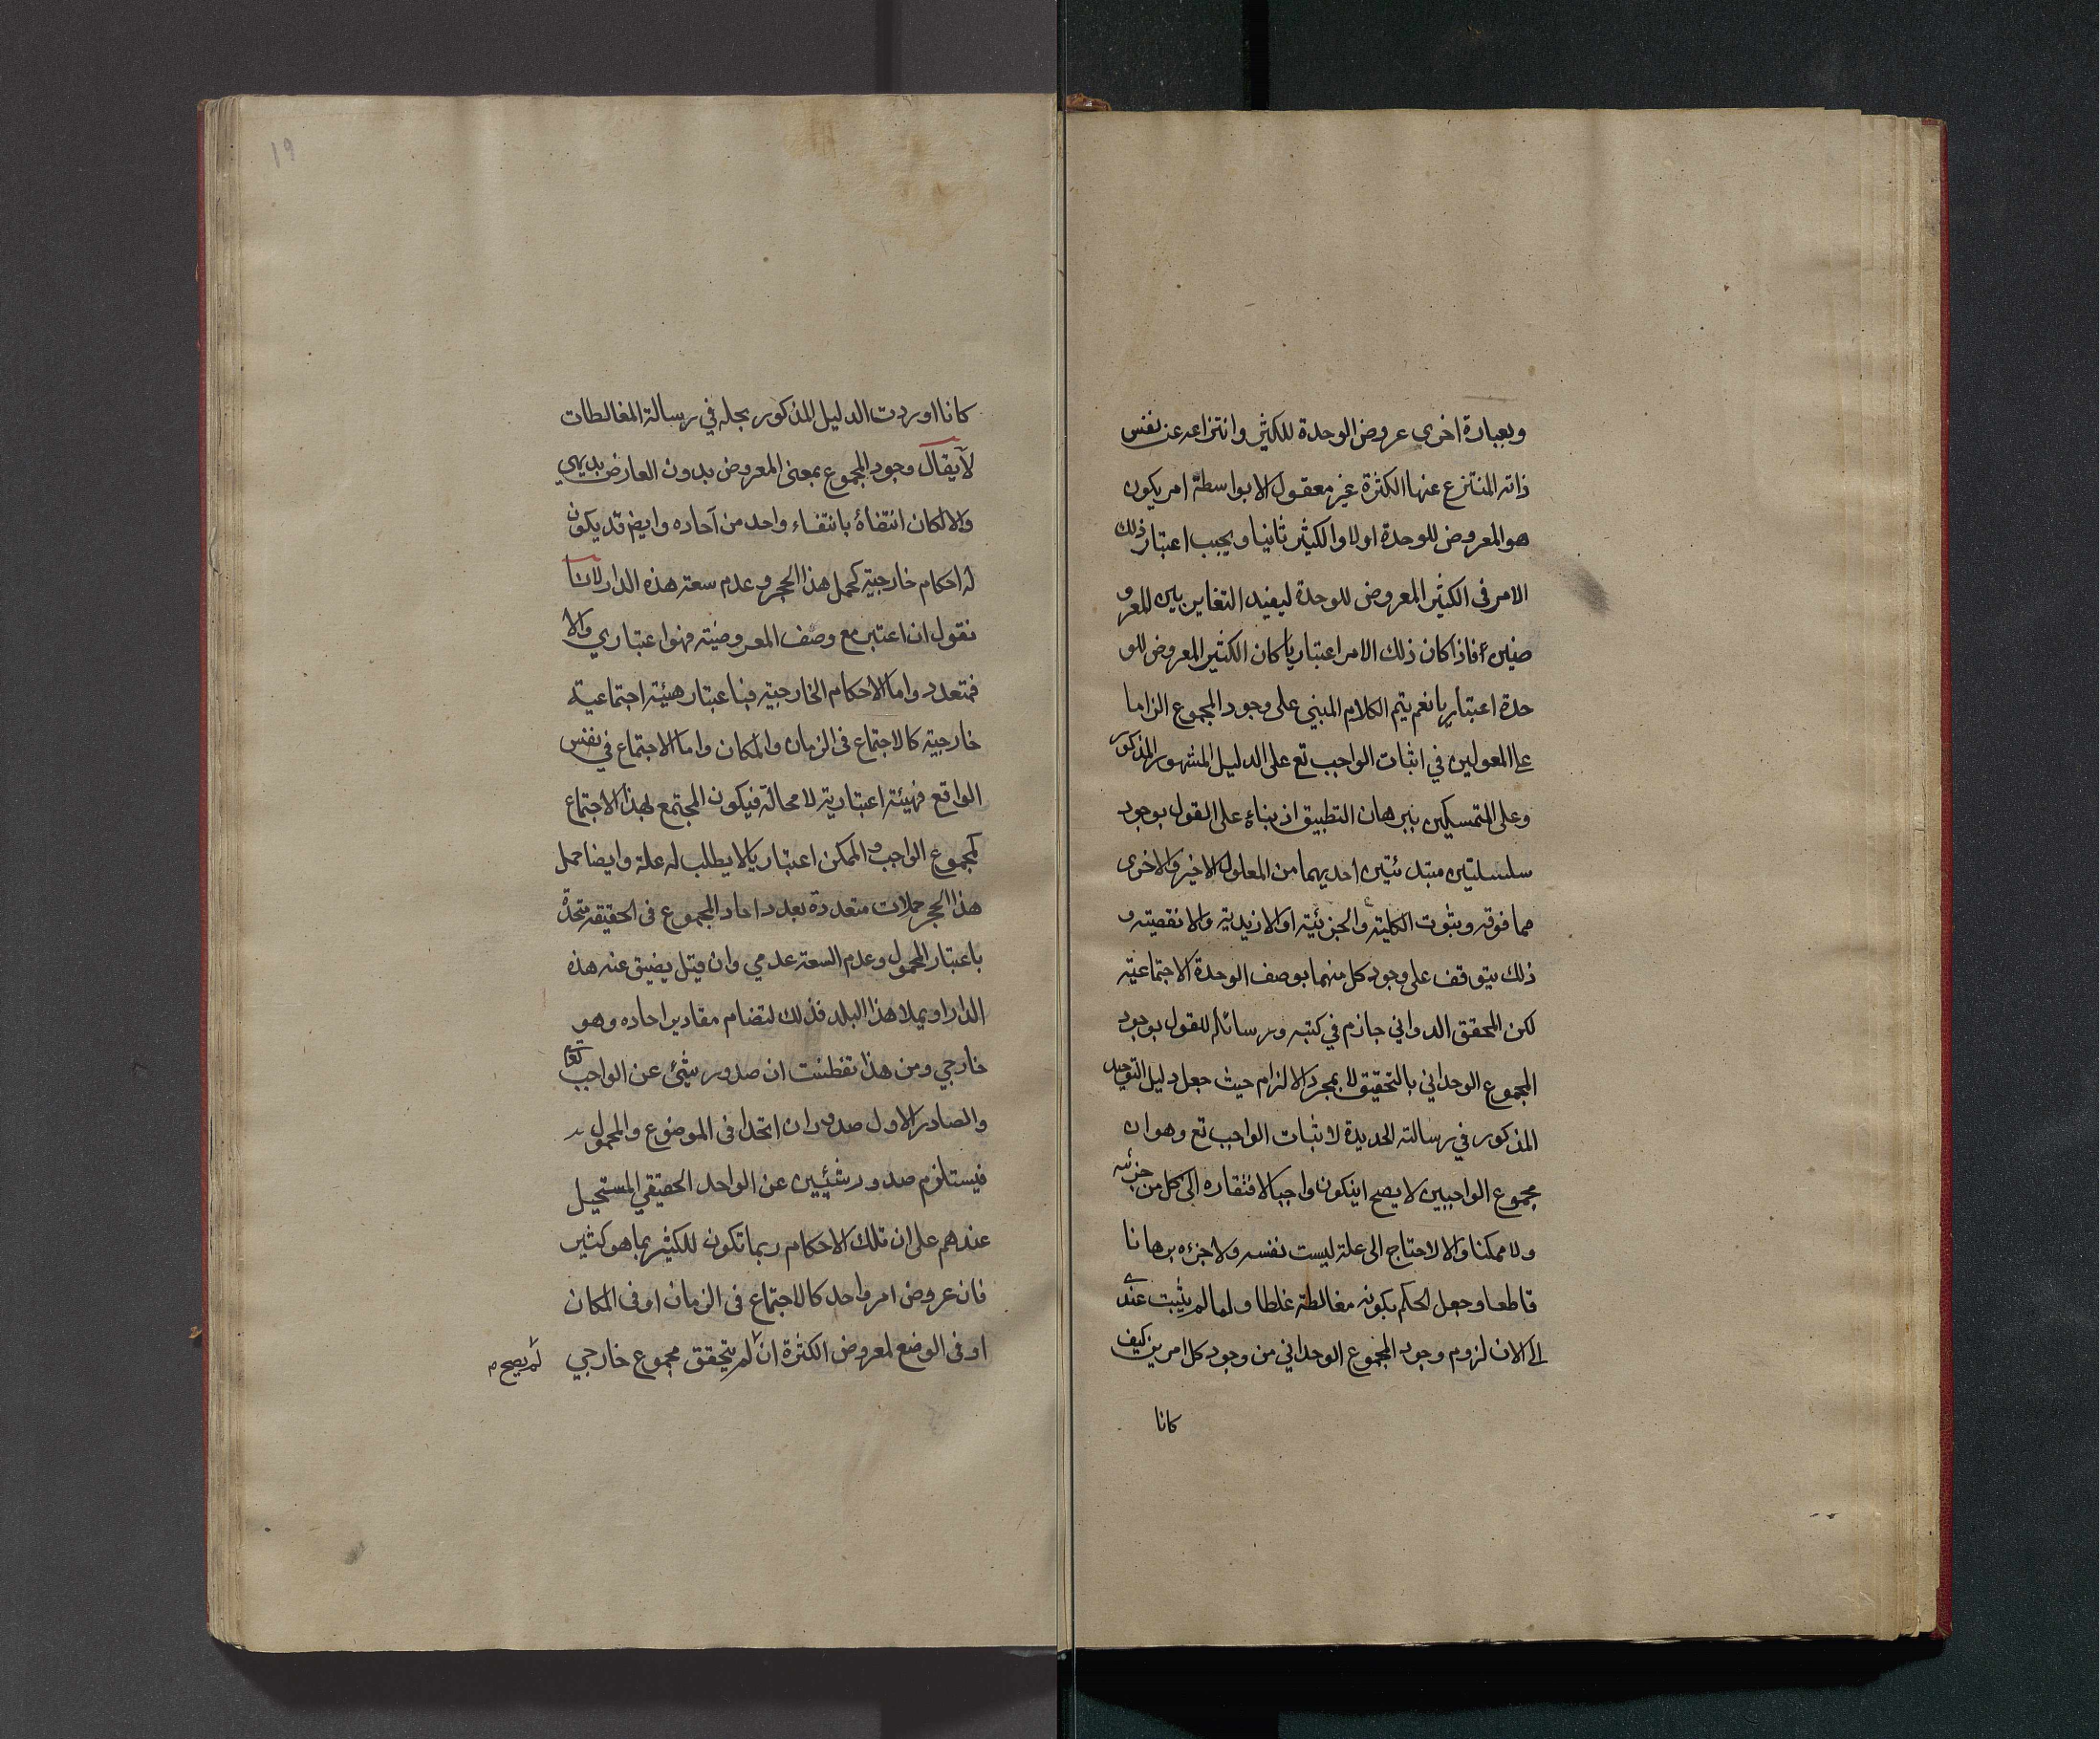 وبعبارة اخرى عروض الوحدة للكثير وانتزاعه عن نفس
ذاته المنتزع عنها الكثرة غير معقول الا بواسطة امر يكون
هو المعروض للوحدة اولا والكثير ثانيا ويجب اعتبار ذلك
الامر فى الكثير المعروض للوحدة ليفيد التغاير بين المعرو
ضين فاذا كان ذلك الامر اعتباريا كان الكثير المعروض للو
حدة اعتباريا نعم يتم الكلام المبني على وجود المجموع الزاما
على المعولين في اثبات الواجب تع على الدليل المشهور المذكور
وعلى المتمسكين ببرهان التطبيق اذ بناءه على القول بوجود
سلسلتين مبتدئتين احديهما من المعلول الاخير والاخرى
مما فوقه وبثبوت الكلية والجزئية او الازيدية والانقصية و
ذلك يتوقف على وجود كل منهما بوصف الوحدة الاجتماعية
لكن المحقق الدواني جازم في كتبه ورسائله للقول بوجود
المجموع الوحداني بالتحقيق لا بمجرد الالزام حيث جعل دليل التوحيد
المذكور في رسالته الجديدة لاثبات الواجب تع وهو ان
مجموع الواجبين لا يصح اينكون واجبا لافتقاره الى كل من جزئيه
ولا ممكنا والا لاحتاج الى علة ليست نفسه ولا جزءه برهانا
قاطعا وجعل الحكم بكونه مغالطة غلطا ولما لم يثبت عندي
الى الان لزوم وجود المجموع الوحداني من وجود كل امرين كيف
كانا
19
كانا اوردت الدليل المذكور بحله في رسالة المغالطات
لا يقال وجود المجموع بمعنى المعروض بدون العارض بديهي
والا لكان انتفاؤه بانتفاء واحد من آحاده وايضا قد يكون
له احكام خارجية كحمل هذا الحجر وعدم سعة هذه الدار لانا
نقول ان اعتبر مع وصف المعروضية فهو اعتباري والا
فمتعدد واما الاحكام الخارجية فباعتبار هيئة اجتماعية
خارجية كالاجتماع فى الزمان والمكان واما الاجتماع في نفس
الواقع فهيئة اعتبارية لا محالة فيكون المجتمع بهذا الاجتماع
كمجموع الواجب والممكن اعتباريا لا يطلب له علة وايضا حمل
هذا الحجر حملات متعددة بعدد احاد المجموع فى الحقيقة متحدة
باعتبار المحمول وعدم السعة عدمي وان قيل يضيق عنه هذه
الدار او يملا هذا البلد فذلك لتضام مقادير احاده وهو
خارجي ومن هذا تفطنت ان صدور شيئ عن الواجب تعا
والصادر الاول صدوران اتحدا فى الموضوع والمحمول
فيستلزم صدور شيئين عن الواحد الحقيقي المستحيل
عندهم على ان تلك الاحكام ربما تكون للكثير بما هو كثير
فان عروض امر واحد كالاجتماع فى الزمان او فى المكان
او فى الوضع لمعروض الكثرة ان لم يتحقق مجموع خارجي لم يصح م